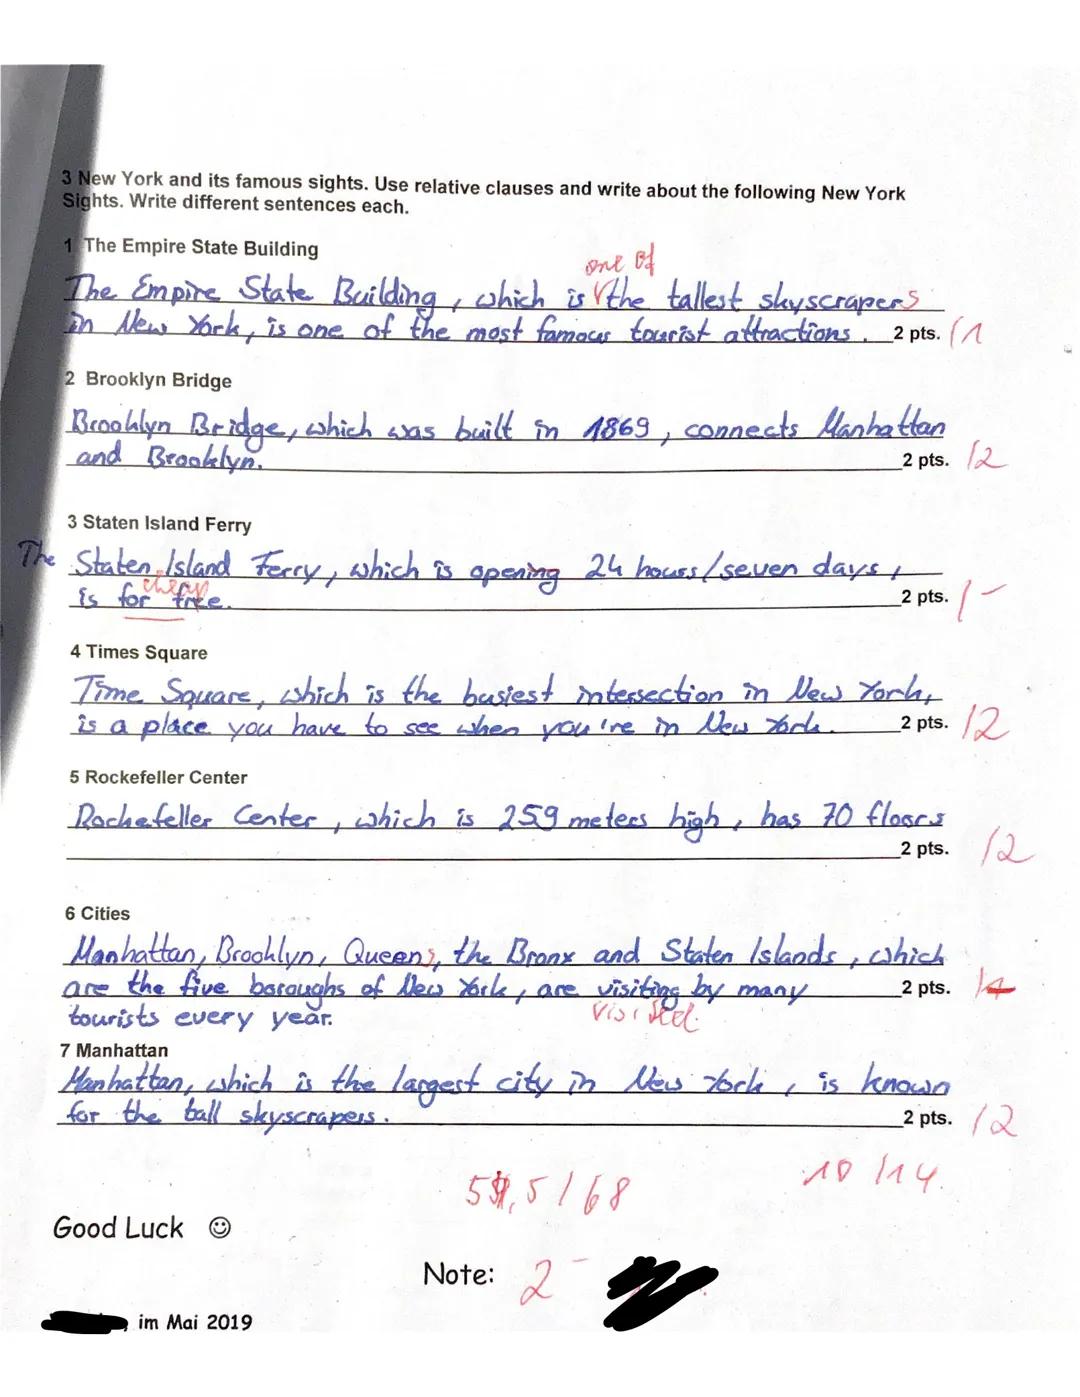 3 New York and its famous sights. Use relative clauses and write about the following New York
Sights. Write different sentences each.
1 The Empire State Building
one of
The Empire State Building, which is the tallest skyscrapers
in New York, is one of the most famous tourist attractions. 2 pts. /1
2 Brooklyn Bridge
Brooklyn Bridge, which was built in 1869, connects Manhattan
and Brooklyn. 2 pts. /2
3 Staten Island Ferry
The Staten Island Ferry, which is opening 24 hours/seven days,
cheap
is for free. 2 pts. /-
4 Times Square
Time Square, which is the busiest intersection in New York,
is a place you have to see when you're in New York. 2 pts. /2
5 Rockefeller Center
Rockefeller Center, which is 259 meters high, has 70 floors
2 pts. /2
6 Cities
Manhattan, Brooklyn, Queens, the Bronx and Staten Islands, which
are the five boroughs of New York, are visiting by many 2 pts.
tourists every year. visited.
7 Manhattan
Manhattan, which is the largest city in New York, is known
for the tall skyscrapers. 2 pts. /2
,5/68 10/14.
Good Luck ☺
Note: 2-
, im Mai 2019